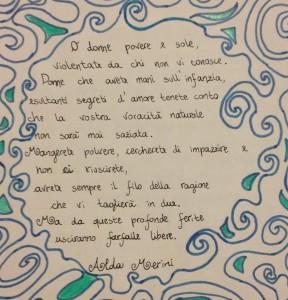 O donne povere e sole,
violentate da chi non vi conosce.
Donne che avete mani sull'infanzia,
esultanti segreti d'amore tenete conto
che la vostra voracità naturale
non sarà mai saziata.
Mangerete polvere, cercherete di impazzire e
non ci riuscirete,
avrete sempre il filo della ragione
che vi taglierà in due.
Ma da queste profonde ferite
usciranno farfalle libere.
Alda Merini